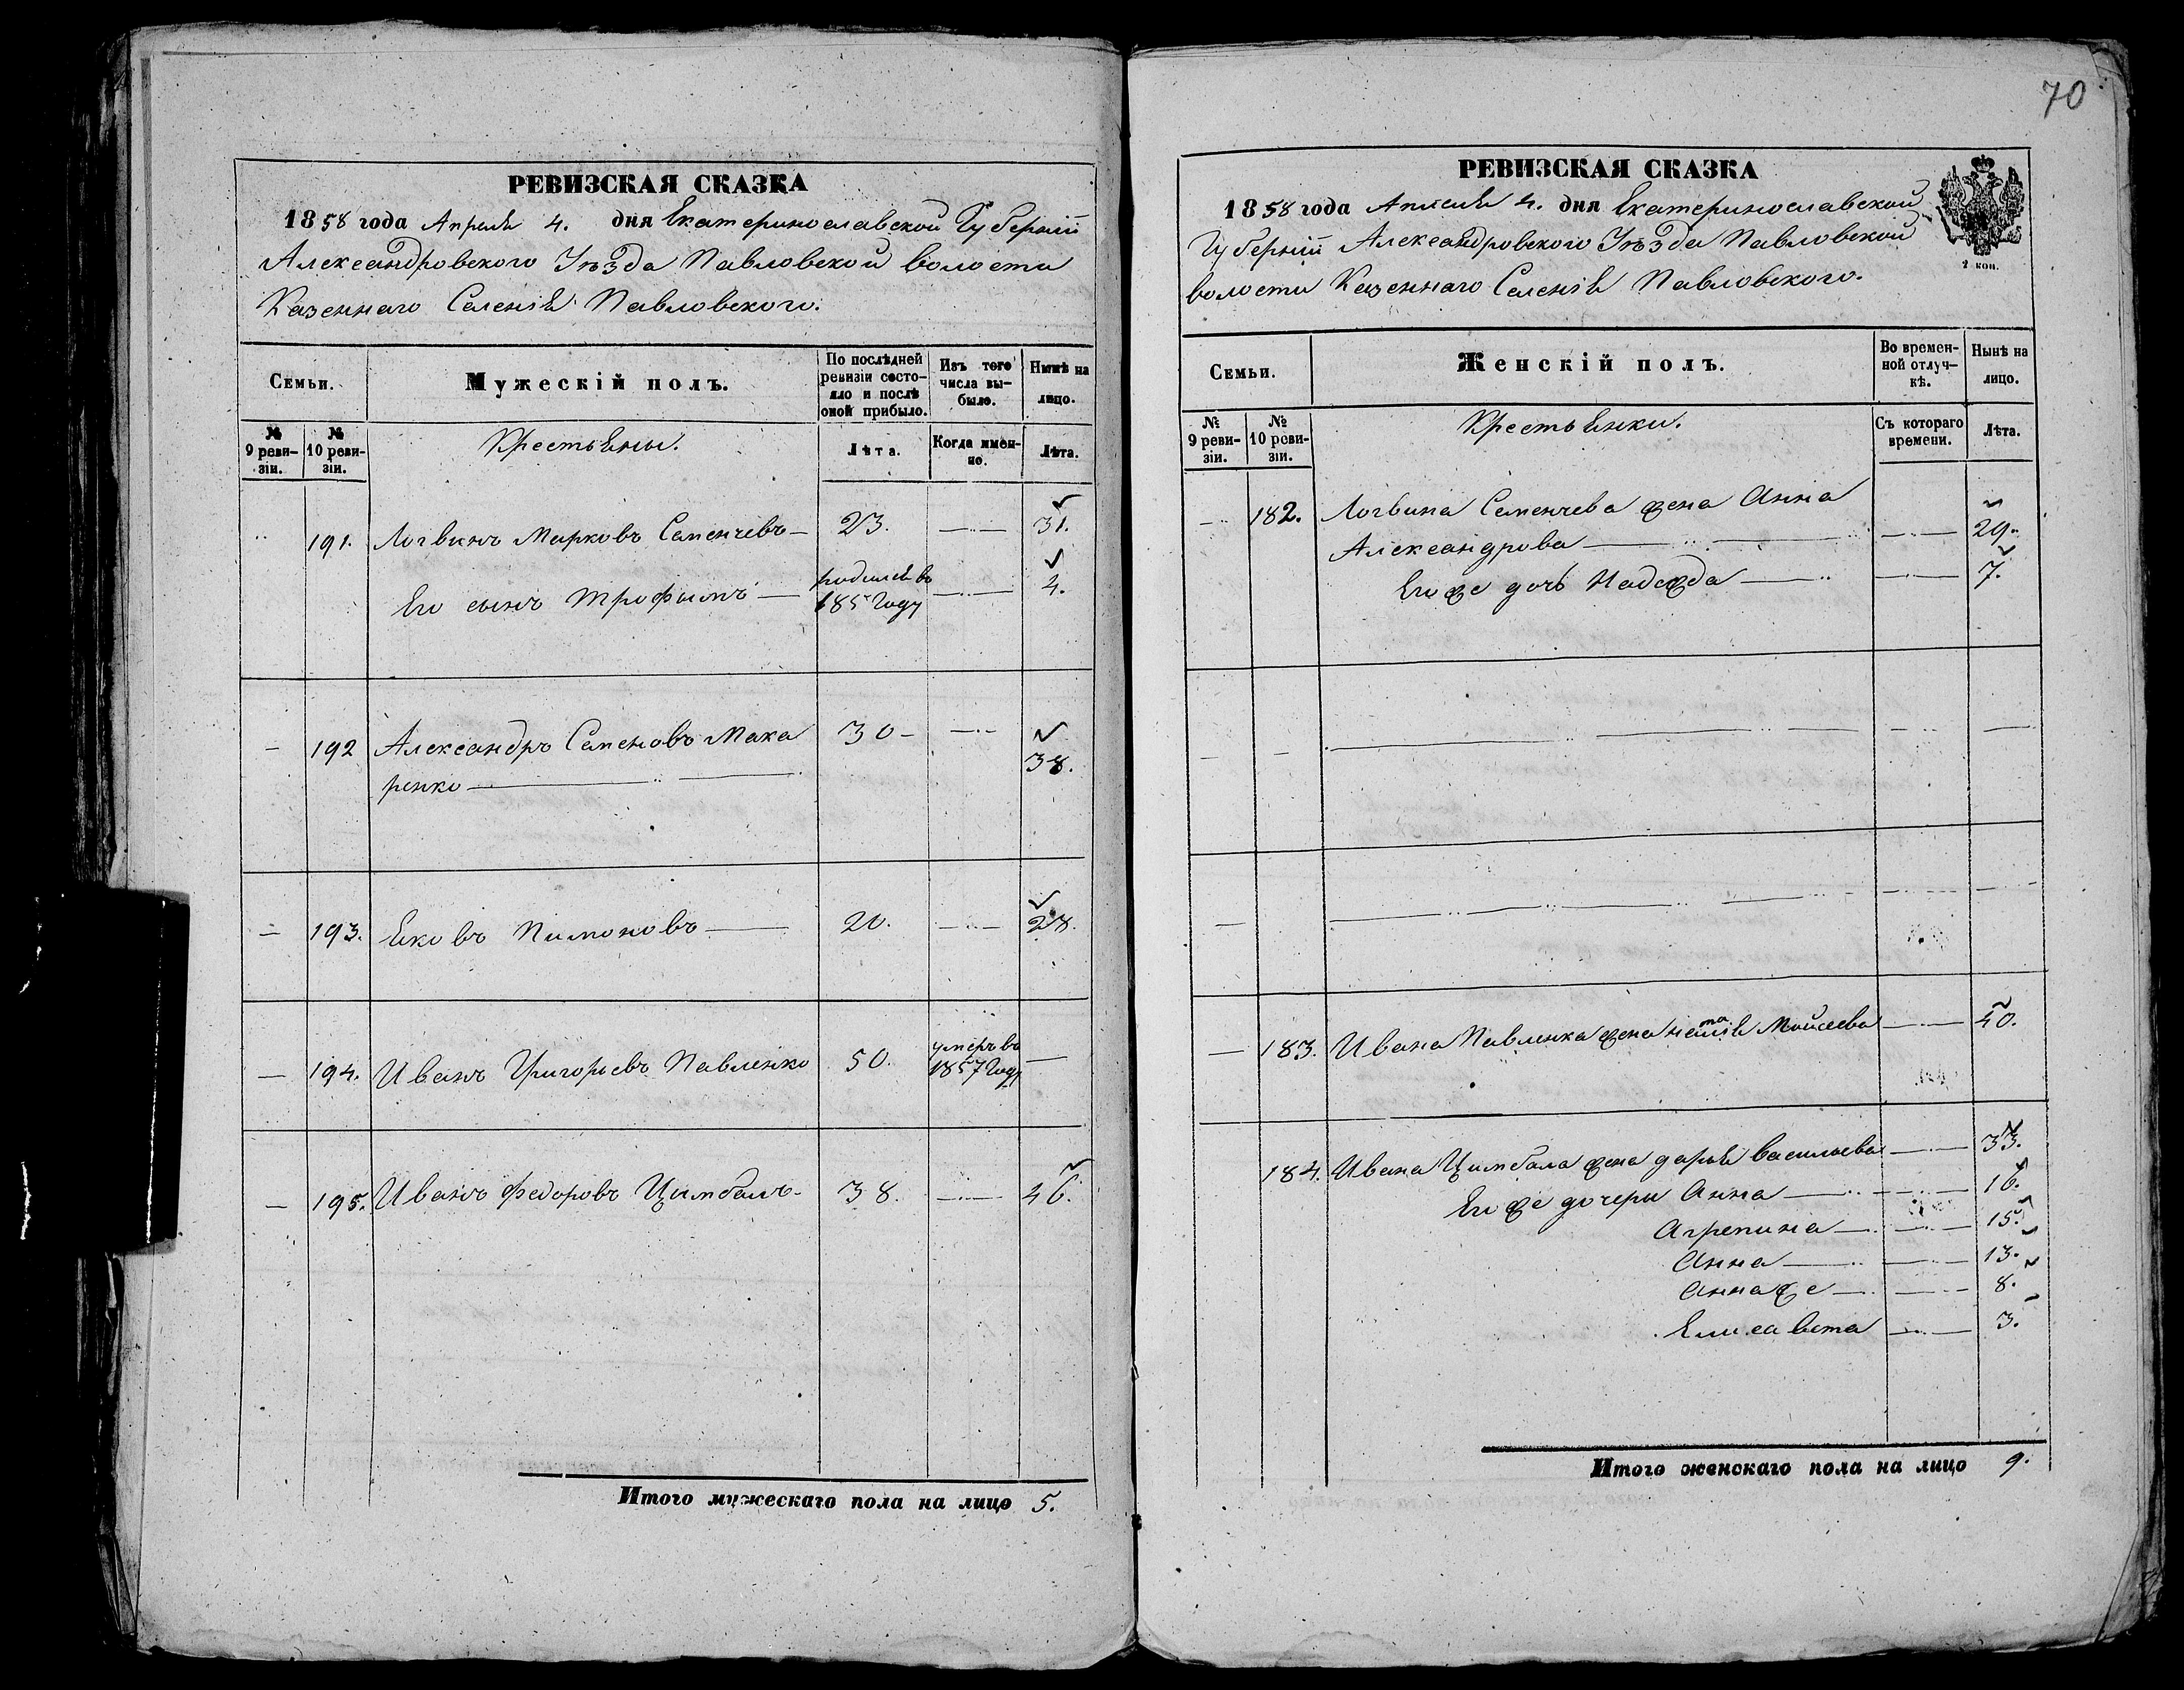 РЕВИЗСКАЯ СКАЗКА
1858 года Апреля 4. дня Екатеринославской Губернiи
Александровского Уѣзда Павловской волости
Казеннаго Селенiя Павловского.
Семьи.
Мужескiй полъ.
По послѣдней
ревизiи состо-
яло и послѣ
оной прибыло.
Изъ того
числа вы-
было.
Нынѣ на
лицо.
№
9 реви-
зiи.
№
10 реви-
зiи.
Крестьяны.
Лѣта.
Когда имен-
но.
Лѣта.
191. Логвинъ Марковъ Саменчевъ 23. 31.
Его сынъ Трофимъ родился въ
185 Году 4.
192 Александръ Саменовъ Мака 30 38.
ренко
193. Яковъ Пимоновъ 20. 28.
194. Иванъ Григорьевъ Павленко 50. умеръ въ
1857 Году
195. Иванъ Федоровъ Цимбалъ 38. 46.
Итого мужескаго пола на лицо 5.
70
РЕВИЗСКАЯ СКАЗКА
1858 года Апреля 4. дня Екатеринославской
Губернiи Александровского Уѣзда Павловской
волости Казеннаго Селенiя Павловского.
2 коп.
Семьи.
Женскiй полъ.
Во времен-
ной отлуч-
кѣ.
Нынѣ на
лицо.
№
9 реви-
зiи.
№
10 реви-
зiи.
Крестьянки.
Съ котораго
времени.
Лѣта.
182. Логвина Саменчева жена Анна
Александрова 29.
Егоже дочь Надежда 7.
183. Ивана Павленка жена Моисеева 40.
184. Ивана Цимбала жена дарья васильева 33.
Его же дочери Анна 16.
Агрепина 15.
Анна 13.
Анна же 8.
Елисавета 3.
Итого женскаго пола на лицо 9.